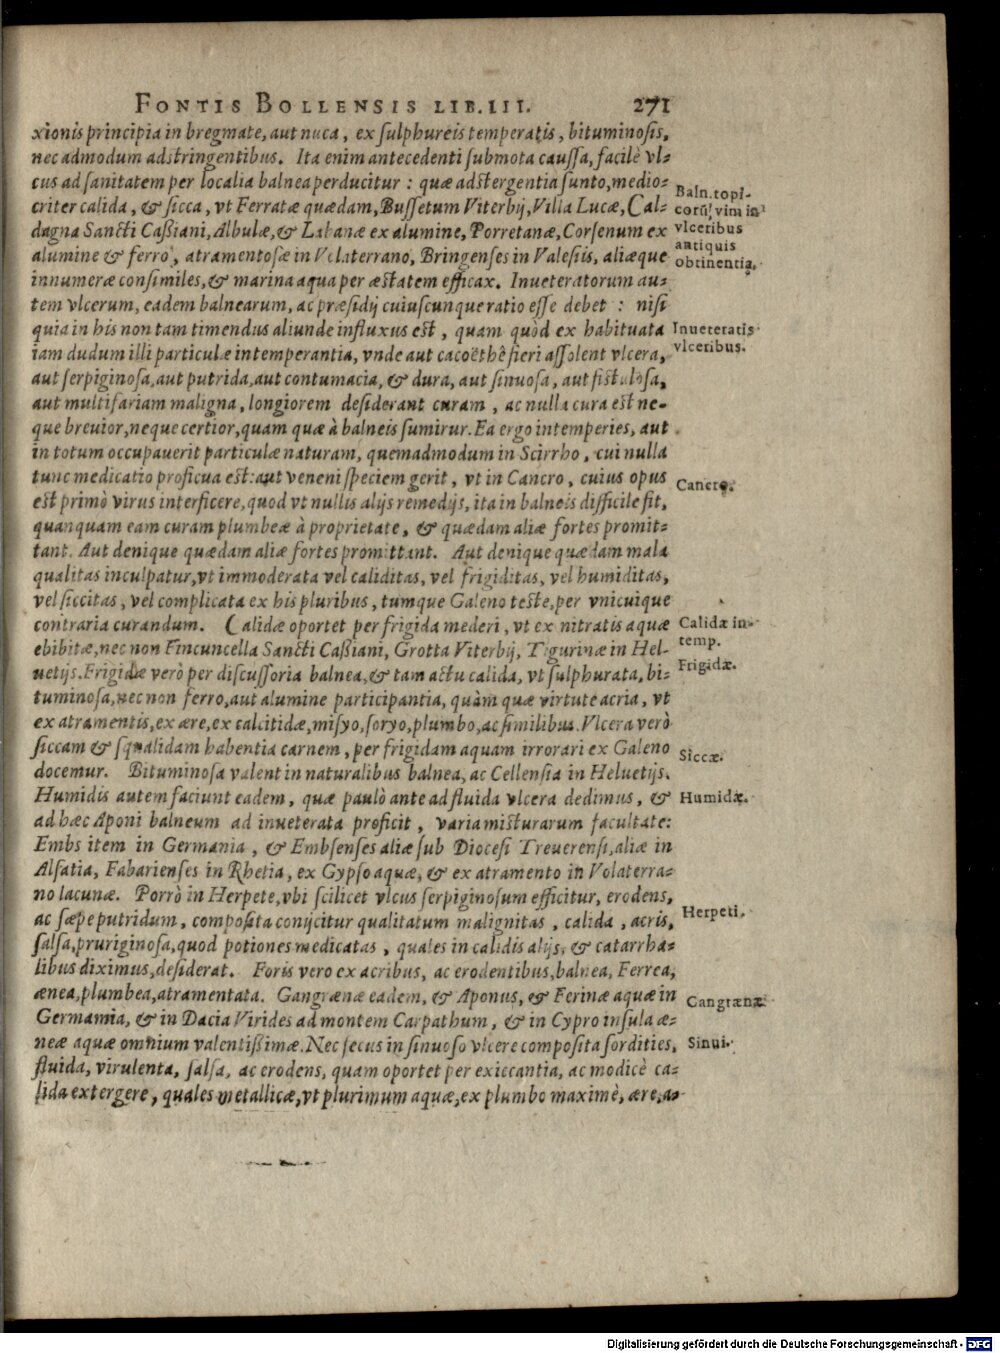 FONTIS BOLLENSIS LIB.III. 271
xionis principia in bregmate, aut nuca, ex sulphureis temperatis, bituminosis,
nec admodum adstringentibus. Ita enim antecedenti submota caussa, facilè vl-
cus ad sanitatem per localia balnea perducitur: quæ adstergentia sunto, medio-
criter calida, & sicca, vt Ferratæ quædam, Bussetum Viterbij, Villa Lucæ, Cal-
dagna Sancti Cassiani, Albulæ, & Labanæ ex alumine, Porretanæ, Corsenum ex
alumine & ferro, atramentosæ in Volaterrano, Bringenses in Valesiis, aliæque
innumeræ consimiles, & marina aqua per æstatem efficax. Inueteratorum au-
tem vlcerum, eadem balnearum, ac præsidij cuiuscunque ratio esse debet: nisi
quia in his non tam timendus aliunde influxus est, quam quòd ex habituata
iam dudum illi particulæ intemperantia, vnde aut cacoëthê fieri assolent vlcera,
aut serpiginosa, aut putrida, aut contumacia, & dura, aut sinuosa, aut fistulosa,
aut multifariam maligna, longiorem desiderant curam, ac nulla cura est ne-
que breuior, neque certior, quam quæ à balneis sumirur. Ea ergo intemperies, aut
in totum occupauerit particulæ naturam, quemadmodum in Scirrho, cui nulla
tunc medicatio proficua est: aut veneni speciem gerit, vt in Cancro, cuius opus
est primò virus interficere, quod vt nullis alijs remedijs, ita in balneis difficile fit,
quanquam eam curam plumbeæ à proprietate, & quædam aliæ fortes promit-
tant. Aut denique quædam aliæ fortes promittant. Aut denique quædam mala
qualitas inculpatur, vt immoderata vel caliditas, vel frigiditas, vel humiditas,
vel siccitas, vel complicata ex his pluribus, tumque Galeno teste, per vnicuique
contraria curandum. Calidæ oportet per frigida mederi, vt ex nitratis aquæ
ebibitæ, nec non Fincuncella Sancti Cassiani, Grotta Viterbij, Tigurinæ in Hel-
uetijs. Frigidæ verò per discussoria balnea, & tam actu calida, vt sulphurata, bi-
tuminosa, nec non ferro, aut alumine participantia, quàm quæ virtute acria, vt
ex atramentis, ex ære, ex calcitidæ, misyo, soryo, plumbo, ac similibus. Vlcera verò
siccam & squalidam habentia carnem, per frigidam aquam irrorari ex Galeno
docemur. Bituminosa valent in naturalibus balnea, ac Cellensia in Heluetijs.
Humidis autem faciunt eadem, quæ paulò ante ad fluida vlcera dedimus, &
ad hæc Aponi balneum ad inueterata proficit, varia misturarum facultate:
Embs item in Germania, & Embsenses aliæ sub Diocesi Treuerensi, aliæ in
Alsatia, Fabarienses in Rhetia, ex Gypso aquæ, & ex atramento in Volaterra-
no lacunæ. Porrò in Herpete, vbi scilicet vlcus serpiginosum efficitur, erodens,
ac sæpe putridum, composita conijcitur qualitatum malignitas, calida, acris,
salsa, pruriginosa, quod potiones medicatas, quales in calidis alijs, & catarrha-
libus diximus, desiderat. Foris vero ex acribus, ac erodentibus, balnea, Ferrea,
ænea, plumbea, atramentata. Gangrænæ eadem, & Aponus, & Ferinæ aquæ in
Germamia, & in Dacia Virides ad montem Carpathum, & in Cypro insula æ-
neæ aquæ omnium valentissimæ. Nec secus in sinuoso vlcere composita sordities,
fluida, virulenta, salsa, ac erodens, quam oportet per exiccantia, ac modicè ca-
lida extergere, quales metallicæ, vt plurimum aquæ, ex plumbo maximè, ære, a-
Baln. topi-
corũ, vim in
vlceribus
antiquis
obtinentia.
Inueteratis
vlceribus.
Cancro.
Calidæ in-
temp.
Frigidæ.
Siccæ.
Humidæ.
Herpeti.
Gangrænæ.
Sinui.
Digitalisierung gefördert durch die Deutsche Forschungsgemeinschaft - DFG